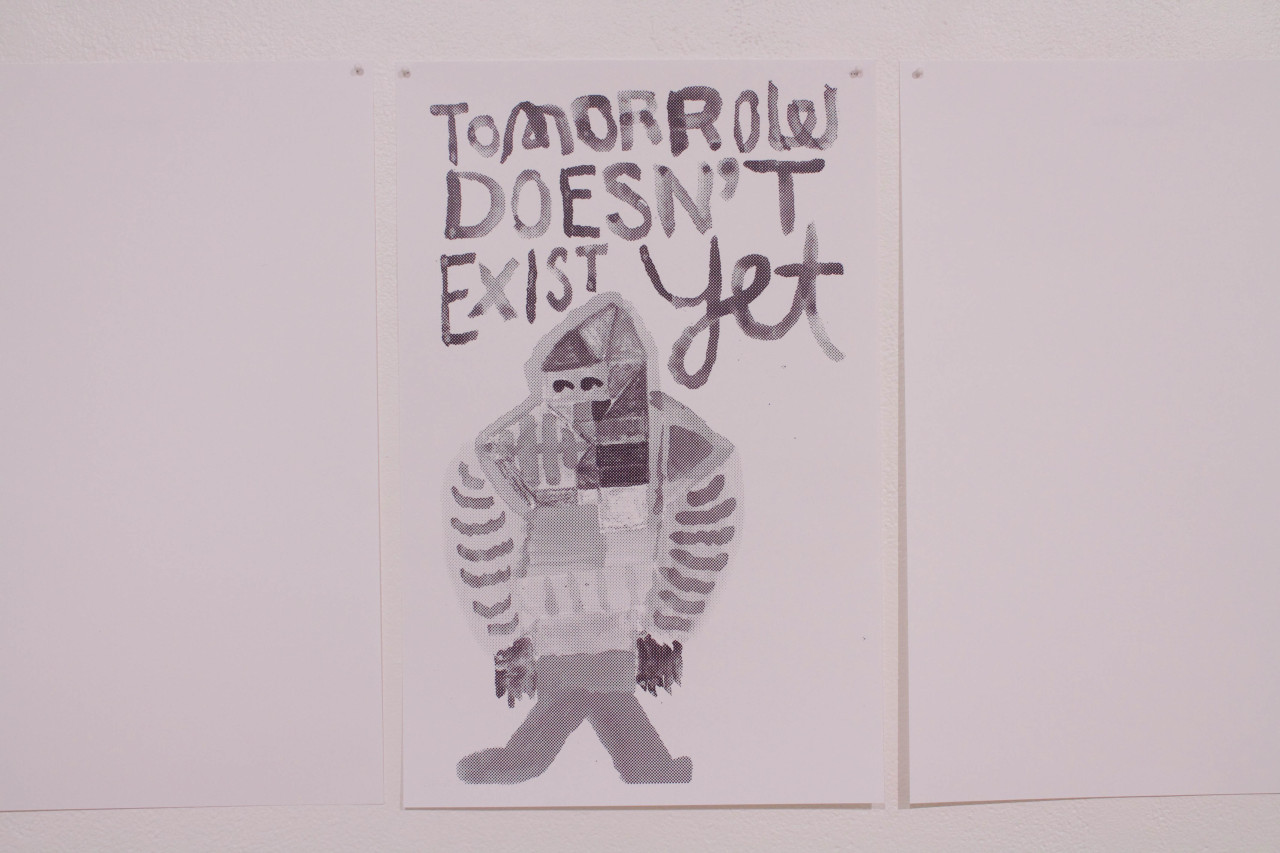 TOMORROW
DOESN'T
EXIST yet